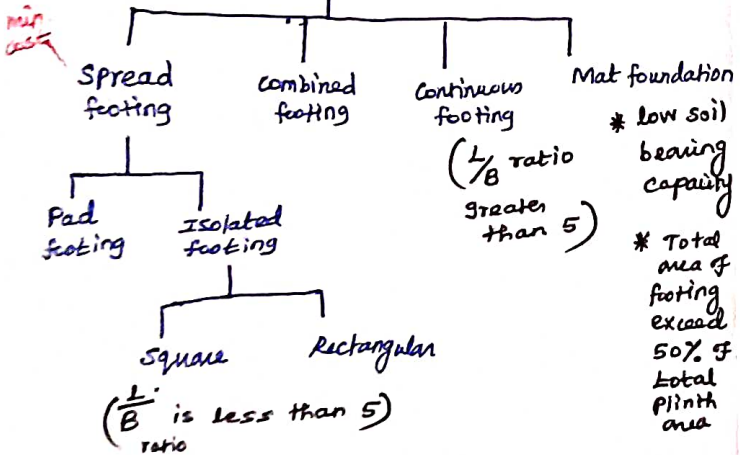 min
cost
Spread
footing
Combined
footing
Continuous
footing
(L/B ratio
greater
than 5)
Mat foundation
* low soil
bearing
capacity
* Total
area of
footing
exceed
50% of
total
plinth
area
Pad
footing
Isolated
footing
Square
Rectangular
(L/B is less than 5)
ratio